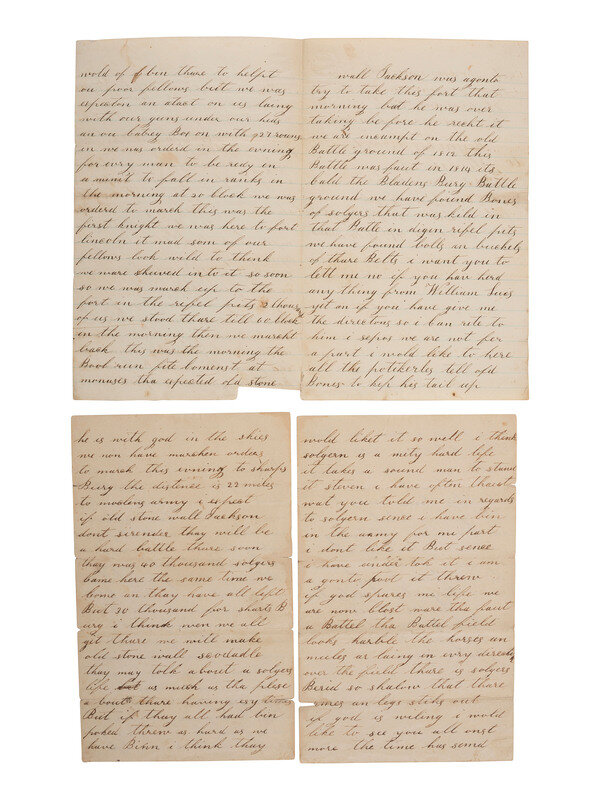 wold of bin thare to helpt
ou poor fellows but we was
expeton an atact on us laing
with our guns under our heds
an ou Box on with 27 rowns
in we was orderd in the evning
for evry man to be redy in
a minit to fall in ranks in
the morning at 20 clock we was
orderd to march this was the
first knight we was here to fort
lincoln it mad som of our
fellows look wild to think
we ware shewed in to it so soon
so we was march up to the
fort in the rifel pits 2 thousand
of us we stood thare till 60 clock
in the morning then we marcht
back this was the morning the
Bool run fite coments at
monases tha expected old stone
wall Jackson was agonto
try to take this fort that
morning but he was over
taking be fore he recht it
we are incampt on the old
Battle ground of 1812 this
Battle was faut in 1814 its
cald the Bladens Burg Battle
ground we have found Bones
of solgers that was kild in
that Batle in digen rifel pits
we have found bolts an buckels
of thare Belts i want you to
lett me no if you have herd
any thing from William
yet an if you have give me
the directons so i can rite to
him i sepos we are not fer
a part i wold like to here
all the tell old
Bones to kep his tail up
he is with god in the skies
we non have marchen orders
to march this evning to sharps
Burg the distence is 22 miles
to army i expect
if old stone wall Jackson
dont surender thay will be
a hard battle thare soon
thay was 40 thousand solgers
came here the same time we
come an thay have all left
But 30 thousand for sharts B
urg i think wen we all
git thare we will make
old stone wall
thay may talk about a solgers
life as much as tha plese
a bout thare having esy times
But if thay all had ben
poked threw as hard as we
have Binn i think thay
wold liket it so well i think
solgern is a mity hard life
it takes a sound man to stand
it steven i have often thaut
wat you told me in regards
to solgern sence i have bin
in the army for me part
i dont like it But sence
i have under tok it i am
a gonto poot it threw
if god spares me life we
are now clost ware tha faut
a Battel tha Battel field
looks harble the horses an
meeles ar laing in evry
over the field thare is solgers
Berid so shalow that thare
armes an legs sticks out
if god is wiling i wold
like to see you all onst
more the time has semd